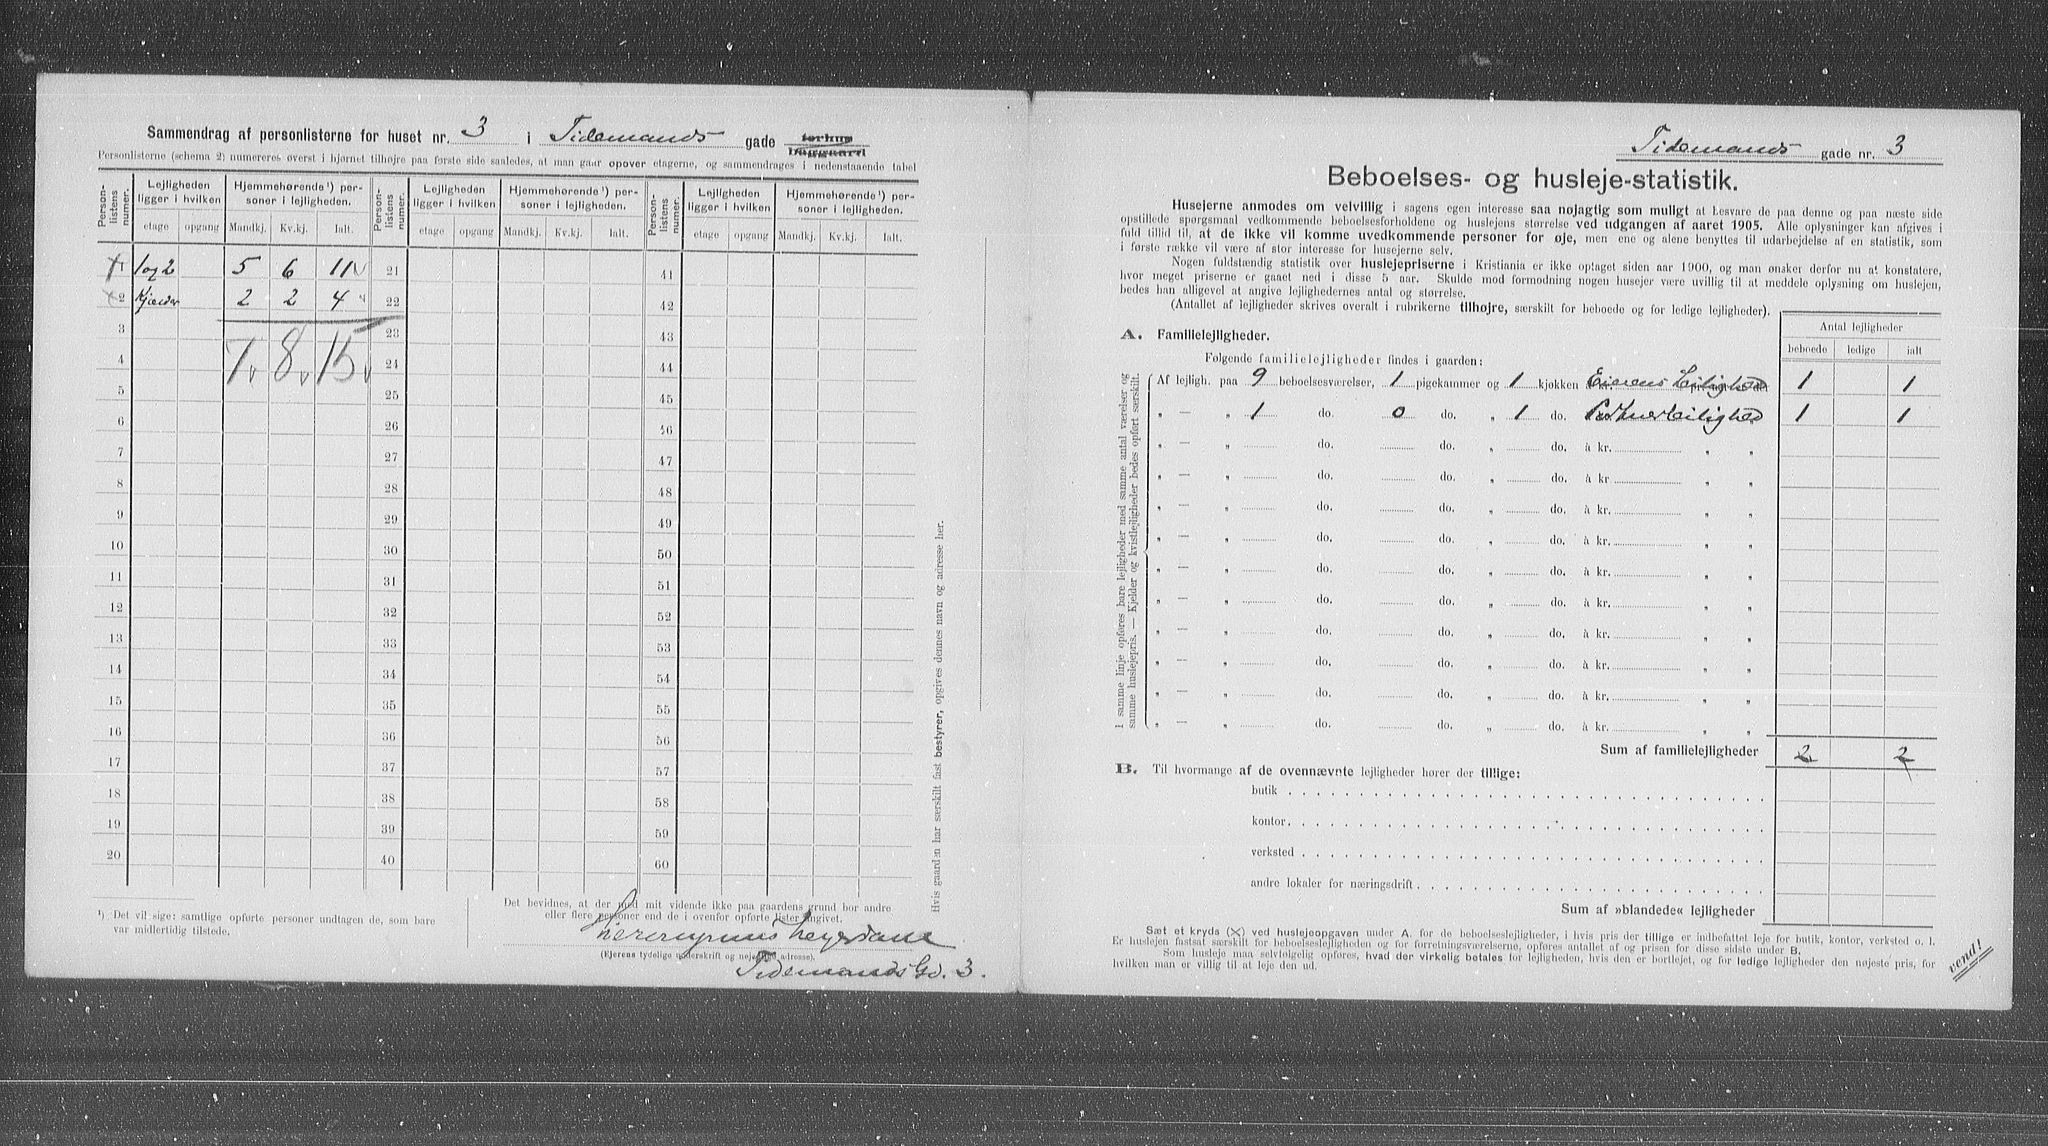 Sammendrag af personlisterne for huset nr. 3 i Tidemands gade forhus
baggaard
Personlisterne (schema 2) numereres øverst i hjørnet tilhøjre paa første side saaledes, at man gaar opover etagerne, og sammendrages i nedenstaaende tabel
Person-listens numer. Lejligheden ligger i hvilken Hjemmehørende¹) personer i lejligheden. Person-listens numer. Lejligheden ligger i hvilken Hjemmehørende¹) personer i lejligheden. Person-listens numer. Lejligheden ligger i hvilken Hjemmehørende¹) personer i lejligheden.
etage opgang Mandkj. Kv.kj. Ialt. etage opgang Mandkj. Kv.kj. Ialt. etage opgang Mandkj. Kv.kj. Ialt.
1 1 og 2 5 6 11 21 41
2 Kjælder 2 2 4 22 42
3 23 43
7 8 15
4 24 44
5 25 45
6 26 46
7 27 47
8 28 48
9 29 49
10 30 50
11 31 51
12 32 52
13 33 53
14 34 54
15 35 55
16 36 56
17 37 57
18 38 58
19 39 59
20 40 60
¹) Det vil sige: samtlige opførte personer undtagen de, som bare
var midlertidig tilstede.
Det bevidnes, at der med mit vidende ikke paa gaardens grund bor andre
eller flere personer end de i ovenfor opførte lister angivet.
Heyerdahl
(Ejerens tydelige underskrift og nøjagtige adresse).
Tidemands Gd. 3.
Hvis gaarden har særskilt fast bestyrer, opgives dennes navn og adresse her.
Tidemands gade nr. 3
Beboelses- og husleje-statistik.
Husejerne anmodes om velvillig i sagens egen interesse saa nøjagtig som muligt at besvare de paa denne og paa næste side
opstillede spørgsmaal vedkommende beboelsesforholdene og huslejens størrelse ved udgangen af aaret 1905. Alle oplysninger kan afgives i
fuld tillid til, at de ikke vil komme uvedkommende personer for øje, men ene og alene benyttes til udarbejdelse af en statistik, som
i første række vil være af stor interesse for husejerne selv.
Nogen fuldstændig statistik over huslejepriserne i Kristiania er ikke optaget siden aar 1900, og man ønsker derfor nu at konstatere,
hvor meget priserne er gaaet ned i disse 5 aar. Skulde mod formodning nogen husejer være uvillig til at meddele oplysning om huslejen,
bedes han alligevel at angive lejlighedernes antal og størrelse.
(Antallet af lejligheder skrives overalt i rubrikerne tilhøjre, særskilt for beboede og for ledige lejligheder).
Antal lejligheder
beboede ledige ialt
A. Familielejligheder.
Følgende familielejligheder findes i gaarden:
Af lejligh. paa 9 beboelsesværelser, 1 pigekammer og 1 kjøkken Eierens Leilighed 1 1
„ — „ 1 do. 0 do. „ 1 do. Portnerleilighed 1 1
„ — „ do. do. „ do. à kr. „ „
„ — „ do. do. „ do. à kr. „ „
„ — „ do. do. „ do. à kr. „ „
„ — „ do. do. „ do. à kr. „ „
„ — „ do. do. „ do. à kr. „ „
„ — „ do. do. „ do. à kr. „ „
„ — „ do. do. „ do. à kr. „ „
„ — „ do. do. „ do. à kr. „ „
„ — „ do. do. „ do. à kr. „ „
„ — „ do. do. „ do. à kr. „ „
I samme linje opføres bare lejligheder med samme antal værelser og
samme huslejepris. — Kjelder og kvistlejligheder bedes opført særskilt.
Sum af familielejligheder 2 2
B. Til hvormange af de ovennævnte lejligheder hører der tillige:
butik
kontor
verksted
andre lokaler for næringsdrift
Sum af »blandede« lejligheder
Sæt et kryds (×) ved huslejeopgaven under A. for de beboelseslejligheder, i hvis pris der tillige er indbefattet leje for butik, kontor, verksted o. l.
Er huslejen fastsat særskilt for beboelseslejligheden og for forretningsværelserne, opføres antallet af og prisen for disse sidste under B.
Som husleje maa selvfølgelig opføres, hvad der virkelig betales for lejligheden, hvis den er bortlejet, og for ledige lejligheder den nøjeste pris, for
hvilken man er villig til at leje den ud.
vend!